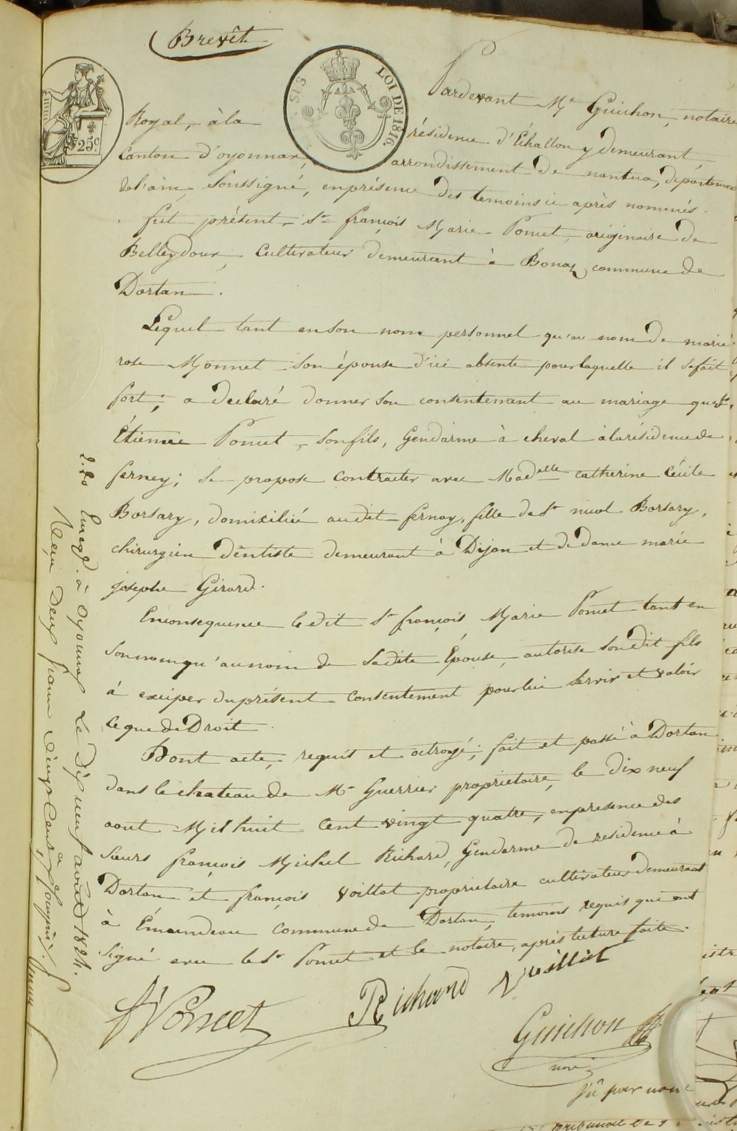 Brevêt
SUS LOI DE 1816
25c
Pardevant Me Guichon, notaire
Royal, à la résidence d'Échallon y demeurant,
Canton d'oyonnax, arrondissement de nantua, département
de l'ain, Soussigné, en présence des temoins ci après nommés.
fut présent, Sr françois Marie Pomet, originaire de
Belleydoux, Cultivateur demeurant à Bonaz, commune de
Dortan.
Lequel tant en son nom personnel qu'au nom de marie
rose Monnet son épouse d'ici absente pour laquelle il se fait
fort; a declaré donner son consentement au mariage que Sr
Étienne Pomet, son fils, Gendarme à cheval à la résidence de
ferney; se propose contracter avec Madelle catherine Cécile
Borsary, domiciliée au dit fernay, fille de Sr nicol Borsary,
chirurgien dentiste demeurant à Dijon et de dame marie
josephe Girard.
En consequence le dit Sr françois Marie Pomet tant en
son nom qu'au nom de Sadite Épouse, autorise son dit fils
à exciper du présent consentement pour lui servir et valoir
ce que de Droit.
Dont acte, requit et octroyé; fait et passé à Dortan
dans le chateau de Mr Guerrier propriétaire, le dix neuf
aout Mil huit Cent vingt quatre, en presence des
Sieurs françois Michel Richard, Gendarme de residence à
Dortan et françois Voillat propriétaire cultivateur demeurant
à Émondeau commune de Dortan, temoins requis qui ont
Signé avec le Sr Pomet et le notaire, après lecture faite.
Richard
Guichon
nore
Vu par nous
2.20 Enregé à Oyonnax Le Dix neuf août 1824.
Reçu Deux francs vingt Centes